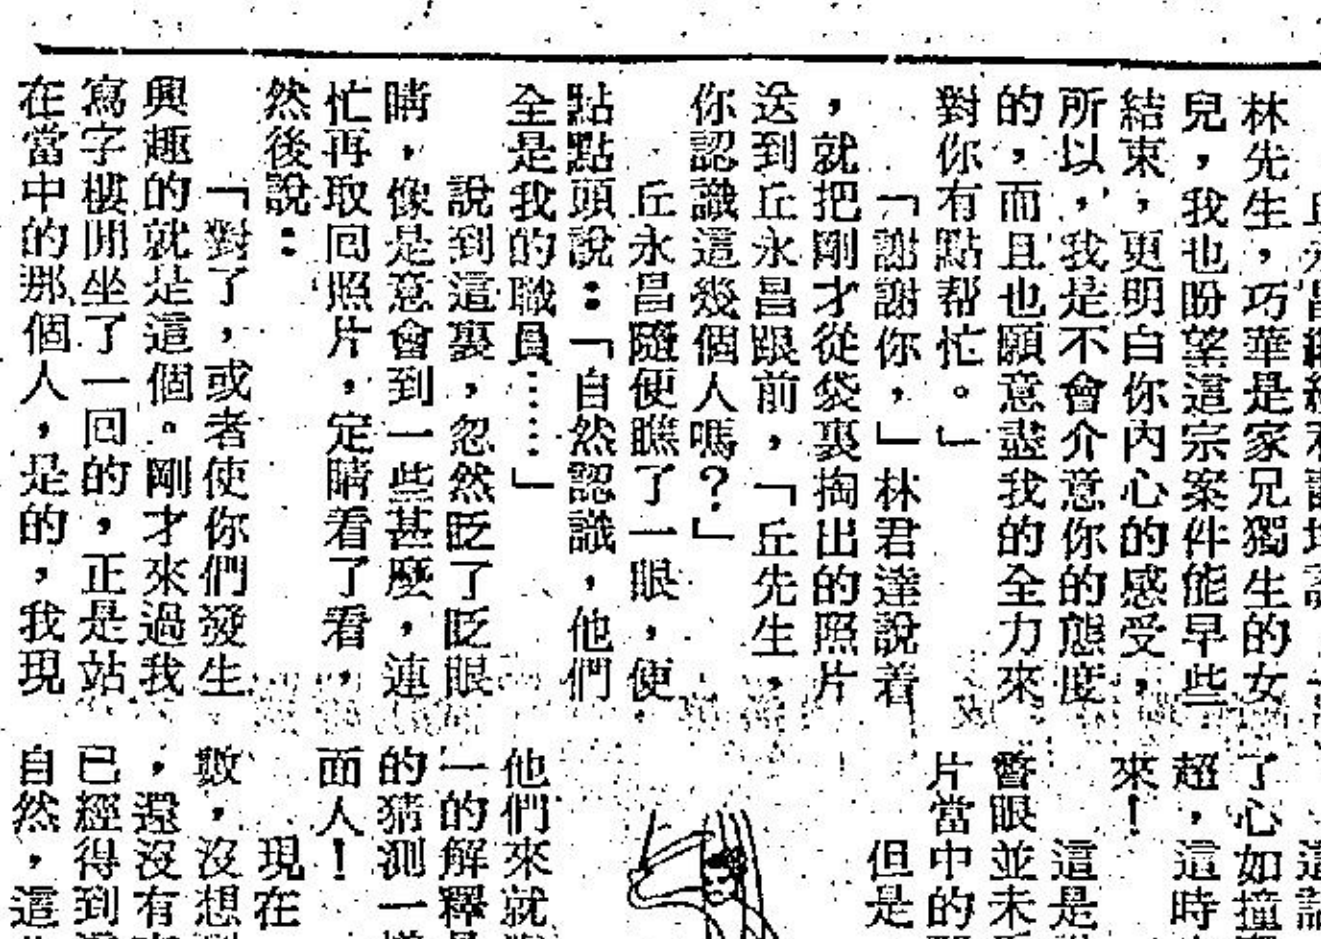 林先生，巧華是家兄獨生的女
兒，我也盼望這宗案件能早些
結束，更明白你內心的感受，
所以，我是不會介意你的態度
的，而且也願意盡我的全力來
對你有點帮忙。」
「謝謝你，」林君達說着
，就把剛才從袋裏掏出的照片
送到丘永昌眼前，「丘先生，
你認識這幾個人嗎？」
丘永昌隨便瞧了一眼，便
點點頭說：「自然認識，他們
全是我的職員……」
說到這裏，忽然眨了眨眼
睛，像是意會到一些甚麼，連
忙再取回照片，定睛看了看，
然後說：
「對了，或者使你們發生
興趣的就是這個。剛才來過我
寫字樓閒坐了一回的，正是站
在當中的那個人，是的，我現
了心如撞
超，這時
來！
這是
瞥眼並未
片當中的
但是
他們來就
一的解釋
的猜測一
面人！
現在
數，沒想
，還沒有
已經得到
自然，這